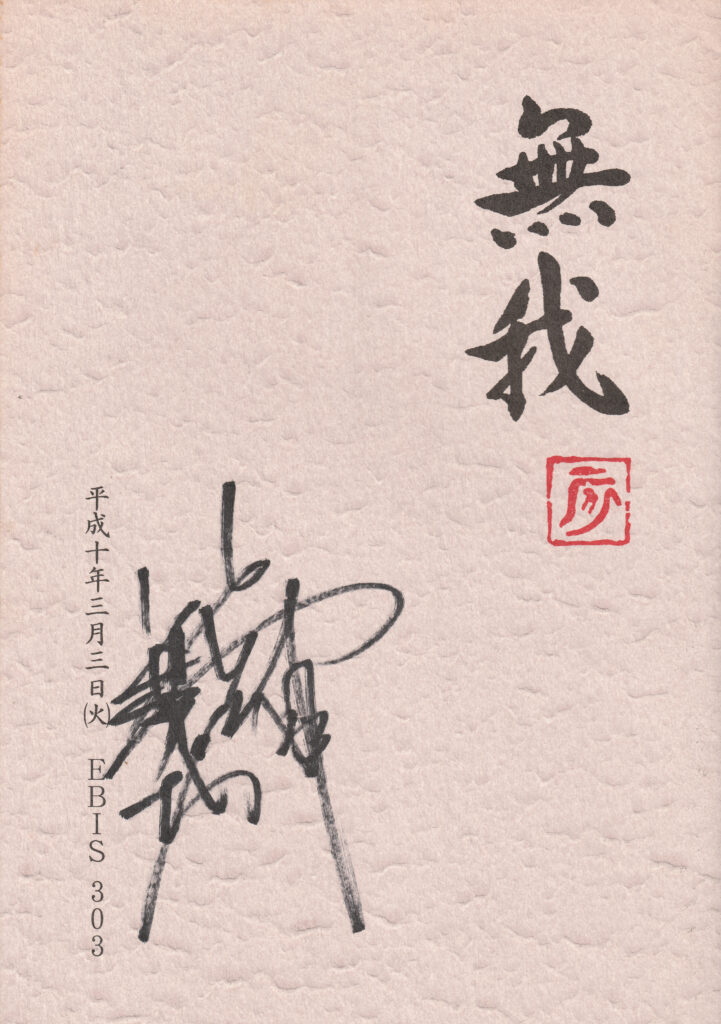 無我
平成十年三月三日㈫ EBIS 303